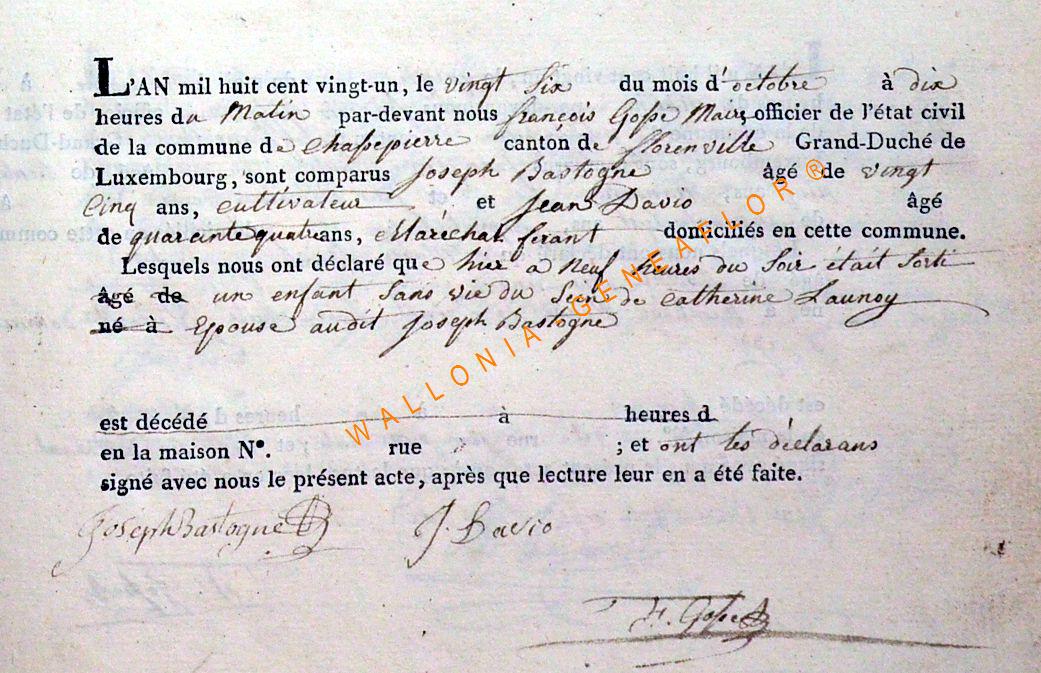 L'AN mil huit cent vingt-un, le vingt Six du mois d'octobre à dix
heures du Matin par-devant nous françois Gosse Maire officier de l'état civil
de la commune de Chassepierre canton de florenville Grand-Duché de
Luxembourg, sont comparus Joseph Bastogne âgé de vingt
Cinq ans, cultivateur et Jean Davio âgé
de quarante quatre ans, Maréchal ferant domiciliés en cette commune.
Lesquels nous ont déclaré que hier a Neuf heures du Soir était Sorti
âgé de un enfant Sans vie du Sein de Catherine Launoy
né à Epouse audit Joseph Bastogne
est décédé à heures d
en la maison N°. rue ; et ont les déclarans
signé avec nous le présent acte, après que lecture leur en a été faite.
Joseph Bastogne J. Davio
F. Gosse
WALLONIA GENEAFLOR®